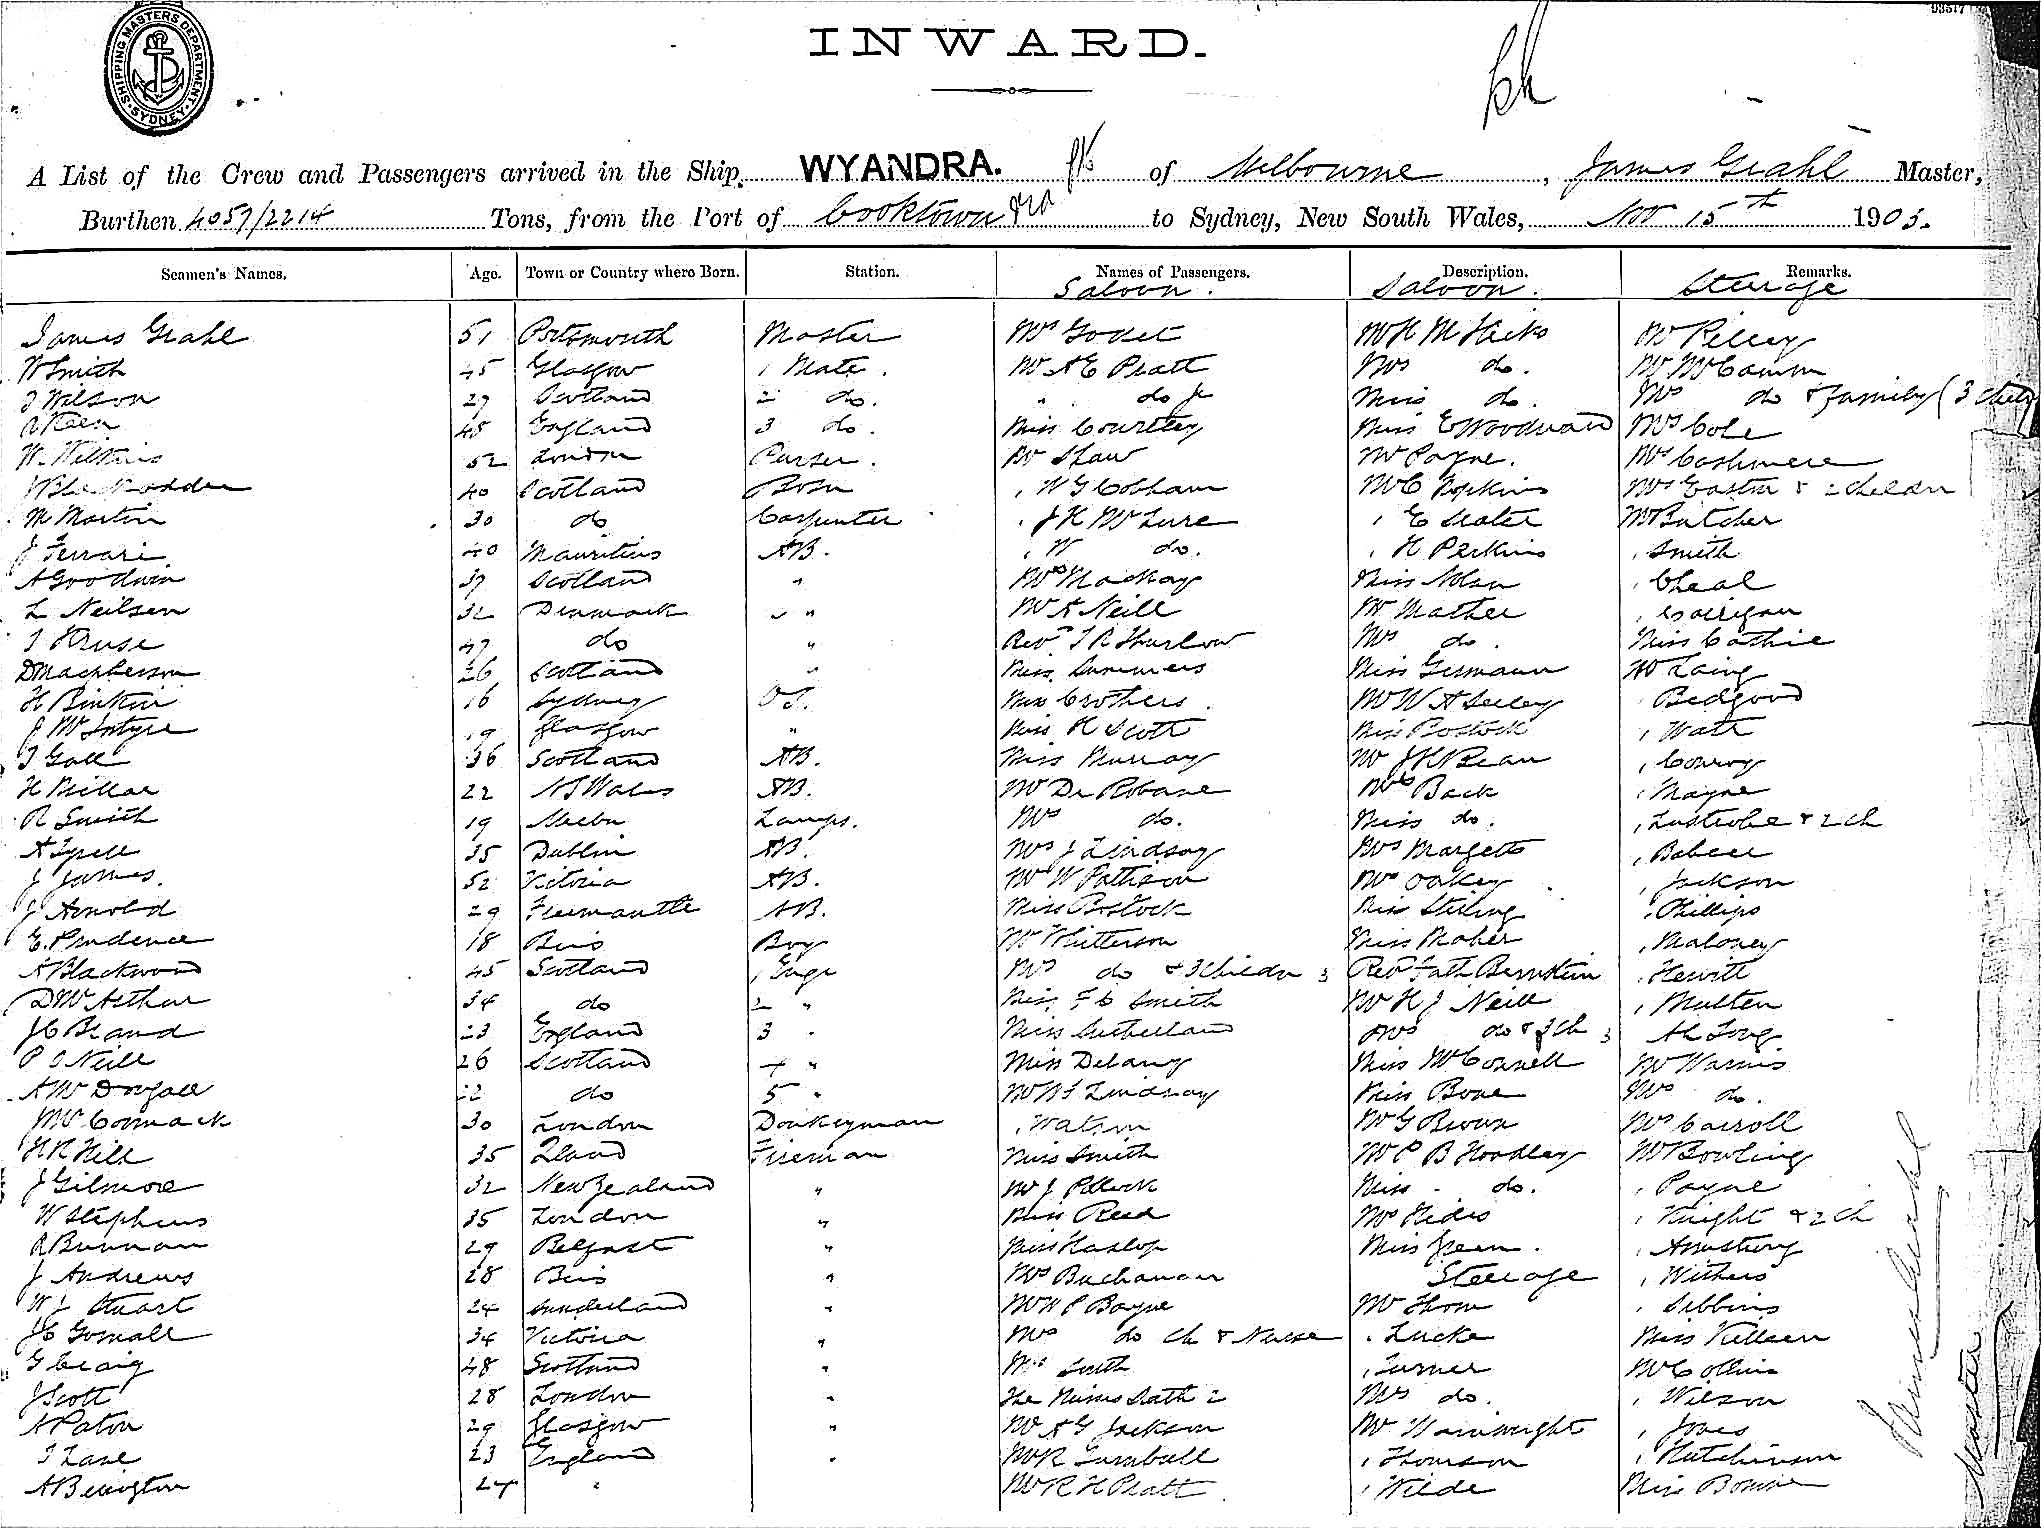 SHIPPING MASTERS DEPARTMENT · SYDNEY ·
INWARD.
A List of the Crew and Passengers arrived in the Ship WYANDRA. of Melbourne, James Grahl Master,
Burthen 4057/2214 Tons, from the Port of Cooktown to Sydney, New South Wales, Nov 15th 1905.
Seamen's Names. Age. Town or Country where Born. Station. Names of Passengers. Description. Remarks.
Saloon. Saloon. Steerage
James Grahl 51 Portsmouth Master Mrs Godet Mr H M Hicks Mr Pelley
W Smith 45 Glasgow 1 Mate. Mr A E Pratt Mrs do. Mr McCamm
J Wilson 29 Scotland 2 do. " do Jr Miss do. Mrs do & family (3 chil
A Keen 48 England 3 do. Miss Courtley Miss E Woodward Mrs Cole
W. Wilkins 52 London Purser. Mr Shaw Mr Payne. Mrs Cashmere
40 Scotland Bosn , W G Cobham Mr C Hopkins Mrs Easton & 2 Childn
M Martin 30 do Carpenter , J K McLure , E Slater Mr Butcher
J Ferrari 40 Mauritius AB. , W do. , H Perkins , Smith
A Goodwin 37 Scotland " Mrs Mackay Miss Nolan , Cheal
L Neilsen 32 Denmark " Mr A Neill Mr Mather , Corrigan
J Kruse 47 do " Rev. T R Thurlow Mrs do. Miss Cathie
D Macpherson 26 Scotland " Miss Summers Miss Germann Mr Laing
H Binkin 16 Sydney OS. Miss Crothers. Mr W A Seeley , Bedgood
J McIntyre 19 Glasgow " Miss K Scott Miss Bostock , Watt
J Gall 36 Scotland AB. Miss Murray Mr J H Bean , Conroy
H Millar 22 N S Wales AB. Mr De Robane Mrs Back , Mayne
R Smith 19 Melbn Lamps. Mrs do. Miss do. , Lustrobe & 2 ch
A Tyrell 35 Dublin AB. Mrs J Lindsay Mrs Margetts , Babell
J James. 52 Victoria AB. Mr W Pattison Mrs Oakey , Jackson
J Arnold 29 Freemantle AB. Miss Bostock Miss Stirling , Phillips
E. Prudence 18 Bris Boy Mr Whitterson Miss Maher , Maloney
A Blackwood 45 Scotland 1 Engr Mrs do & 3 Childn 3 Rev Fath Bernstein , Hewitt
D McArthur 34 do 2 " Miss F C Smith Mr H J Neill , Mullen
J C Brand 23 England 3 " Miss Sutherland Mrs do & 3 Ch 3 Ah Long
P O Neill 26 Scotland 4 " Miss Delany Miss McConnell Mr Warnis
A McDougall 22 do 5 " Mr W J Lindsay Miss Bone Mrs do.
McCormack 30 London Donkeyman , Watson Mr G Brown Mrs Carroll
H R Hill 35 Qland Fireman Miss Smith Mr P B Hoadley Mr Bowling
J Gilmore 32 New Zealand " Mr J Pollock Miss do. , Payne
W Stephens 35 London " Miss Reed Mrs Hides , Knight & 2 Ch
R Brennan 29 Belfast " Miss Haslop Miss Green. , Armstrong
J Andrews 28 Bris " Mrs Buchanan Steerage , Withers
W J Stuart 24 Sunderland " Mr W P Bayne Mr Thom , Sibbins
J C Gomall 34 Victoria " Mrs do ch & Nurse , Lucke Miss Killeen
G Craig 48 Scotland " Mrs Smith , Turner Mr Collins
J Scott 28 London " The Misses Sath 2 Mrs do. , Wilson
A Paton 29 Glasgow " Mr A G Jackson Mr Wainwright , Jones
J Lane 23 England " Mr R Turnbull , Thomson , Hutchinson
A Bevington 24 " Mr R H Pratt , Wilde Miss Bourne
Master